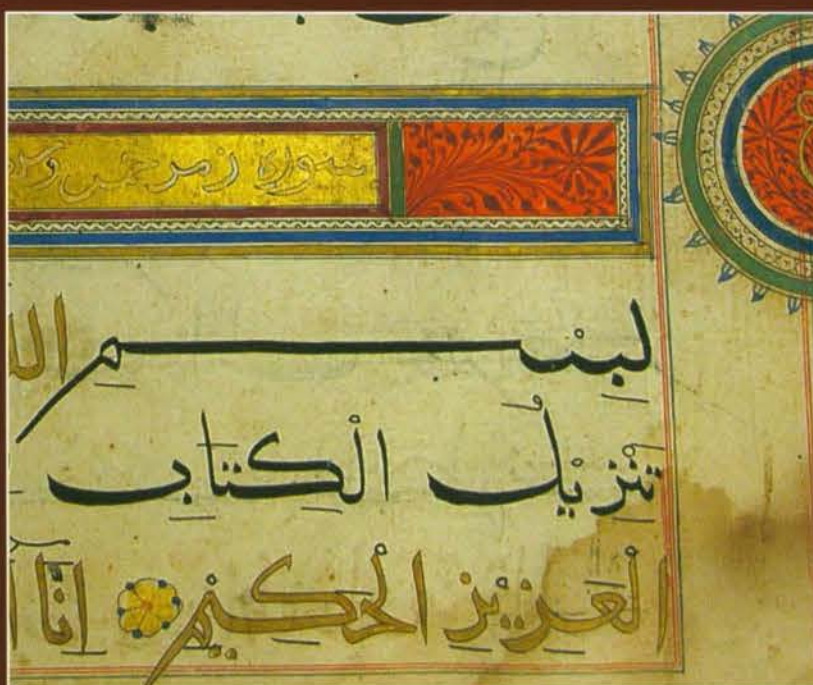 سورة زمر خمس و
بِسْمِ الل
تَنْزِيلُ الْكِتَابِ
الْعَزِيزِ الْحَكِيمِ إِنَّا أ